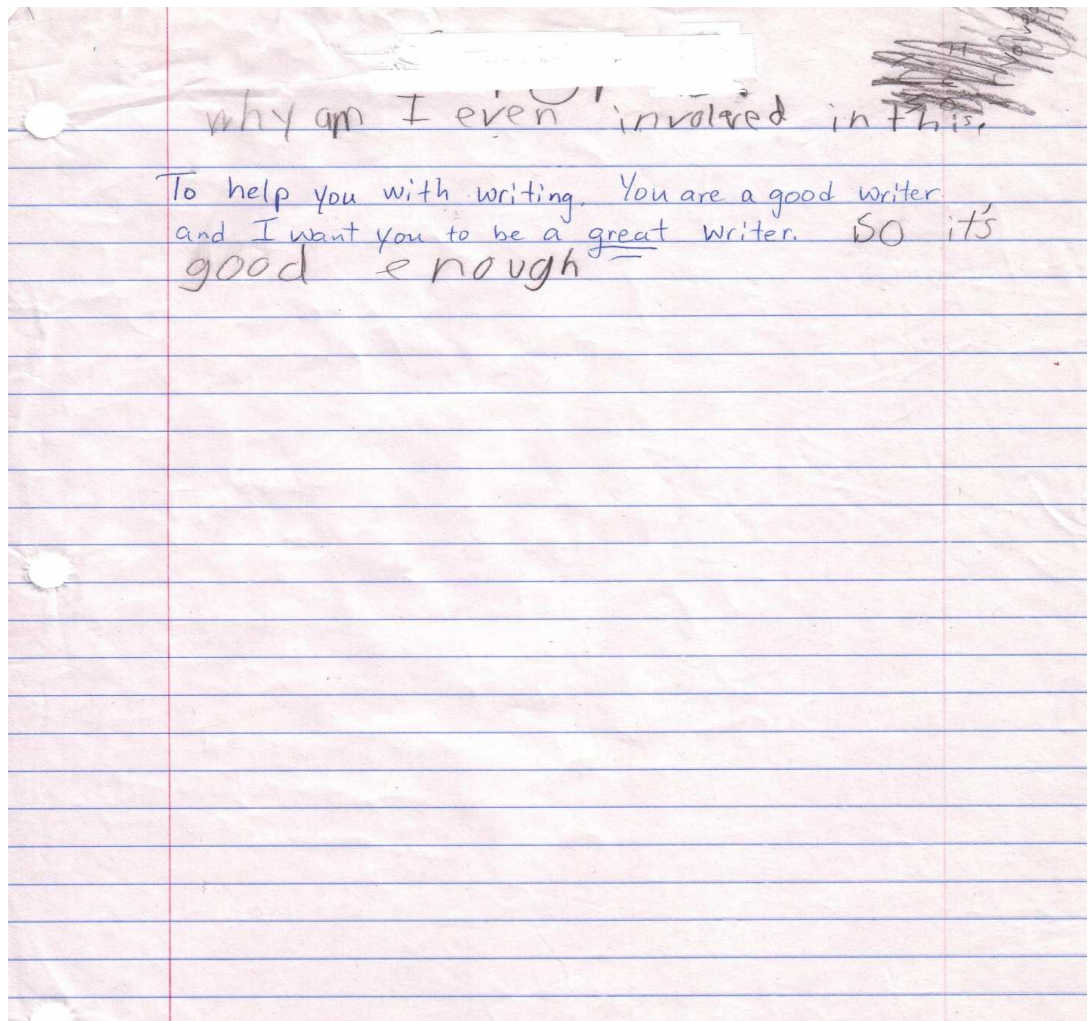 why am I even involved in this.
To help you with writing. You are a good writer
and I want you to be a great writer. So it's
good enough